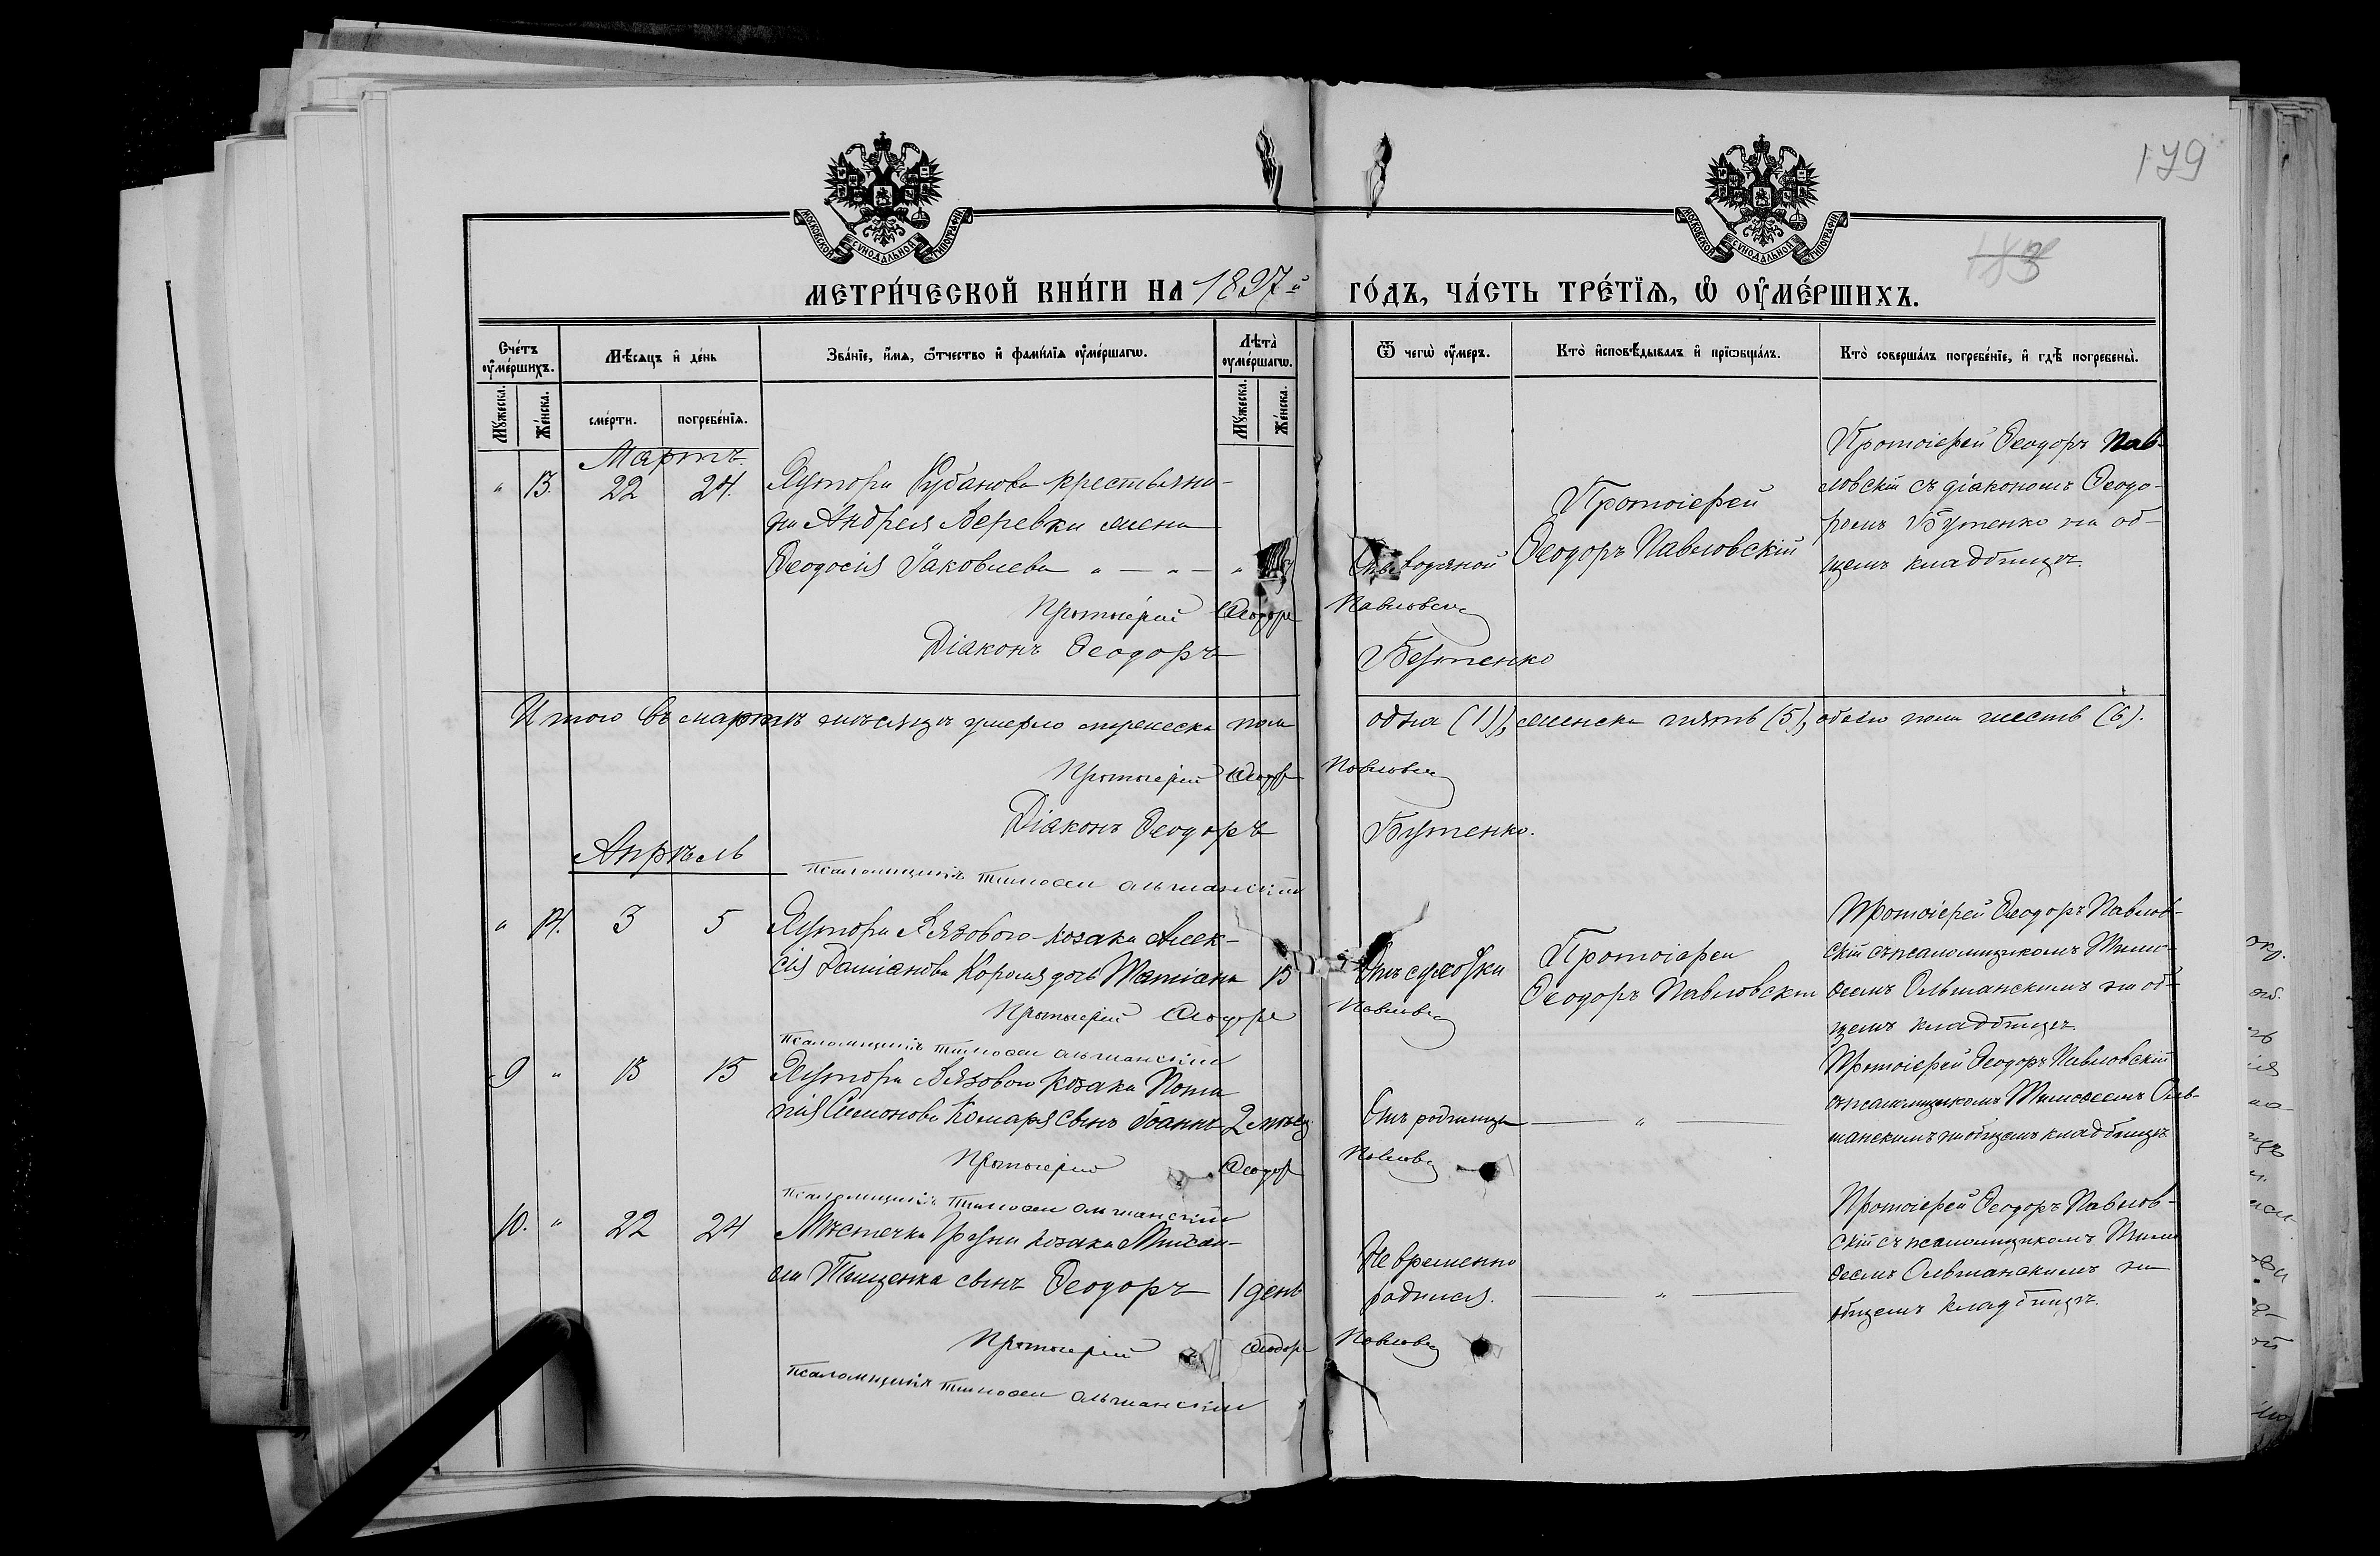 179
183
МОСКОВСКОЙ СУНОДАЛЬНОЙ ТИПОГРАФІИ
МОСКОВСКОЙ СУНОДАЛЬНОЙ ТИПОГРАФІИ
МЕТРИ́ЧЕСКОЙ КНИ́ГИ НА 1897й ГО́ДЪ, ЧА́СТЬ ТРЕ́ТЇѦ, Ѡ҆ ОУ҆МЕ́РШИХЪ.
Сче́тъ оу҆ме́ршихъ.
Мѣ́сяцъ и҆ де́нь
Зва́нїе, и҆́мя, ѻ҆́тчество и҆ фами́лїя оу҆ме́ршагѡ.
Лѣ́та̀ оу҆ме́ршагѡ.
Ѿ чегѡ̀ оу҆́меръ.
Кто̀ и҆сповѣ́дывалъ и҆ прїѻбща́лъ.
Кто̀ соверша́лъ погребе́нїе, и҆ гдѣ̀ погребены̀.
Мꙋ́жеска.
Же́нска.
сме́рти.
погребе́нїя.
Мꙋ́жеска.
Же́нска.
Мартъ.
" 13. 22 24. Хутора Рубанова крестьяни-
на Андрея Веревки жена
Ѳеодосія Іаковлева " — " — "
Отъ водяной
Протоіерей
Ѳеодоръ Павловскій
Протоіерей Ѳеодоръ Пав-
ловскій съ діакономъ Ѳеодо-
ромъ Бутенко на об-
щемъ кладбищѣ
Протоіерей Ѳеодоръ Павловск
Діаконъ Ѳеодоръ Бутенко
Итого въ мартѣ мѣсяцѣ умерло мужеска пола одна (1), женска пять (5), обоего пола шесть (6).
Протоіерей Ѳеодоръ Павловск
Діаконъ Ѳеодоръ Бутенко.
Апрѣль
Псаломщикъ Тимоѳеи Ольшанскій
" 14. 3 5 Хутора Вязового козака Алек-
сія Даміанова Короля дочь Татіана 13
Отъ сухотки
Протоіереи
Ѳеодоръ Павловскій
Протоіерей Ѳеодоръ Павлов-
скій съ псаломщикомъ Тимо-
ѳеемъ Ольшанскимъ на об-
щемъ кладбищѣ
Протоіерей Ѳеодоръ Павловск
Псаломщикъ Тимоѳеи Ольшанскій
9 " 13 15 Хутора Вязового козака Пота
пія Симонова Комаря сынъ Іоаннъ 2 мѣсяц
Отъ родимца — " —
Протоіерей Ѳеодоръ Павловскій
съ псаломщикомъ Тимоѳеемъ Оль-
шанскимъ на общемъ кладбищѣ
Протоіерей Ѳеодоръ Павловск
Псаломщикъ Тимоѳеи Ольшанскій
10. " 22 24 Мѣстечка Груни козака Михаи-
ла Тищенка сынъ Ѳеодоръ 1 день
Не временно
родился. — " —
Протоіерей Ѳеодоръ Павлов-
скій съ псаломщикомъ Тимо
ѳеемъ Ольшанскимъ на
общемъ кладбищѣ.
Протоіерей Ѳеодоръ Павловск
Псаломщикъ Тимоѳеи Ольшанскій